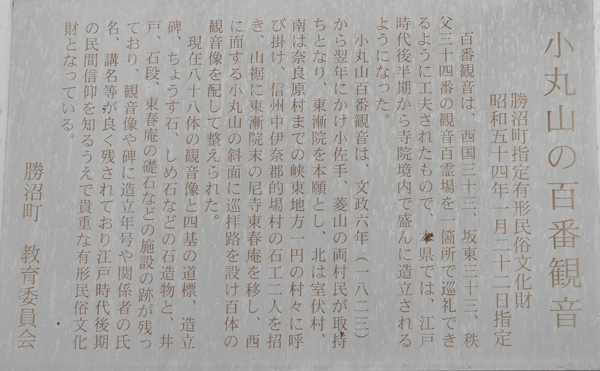 小丸山の百番観音
勝沼町指定有形民俗文化財
昭和五十四年一月二十二日指定
百番観音は、西国三十三、坂東三十三、秩
父三十四番の観音百霊場を一箇所で巡礼でき
るように工夫されたもので、本県では、江戸
時代後半期から寺院境内で盛んに造立される
ようになった。
小丸山百番観音は、文政六年（一八二三）
から翌年にかけ小佐手、菱山の両村民が取持
ちとなり、東漸院を本願とし、北は室伏村、
南は奈良原村までの峡東地方一円の村々に呼
び掛け、信州中伊奈郡的場村の石工二人を招
き、山裾に東漸院末の尼寺東春庵を移し、西
に面する小丸山の斜面に巡拝路を設け百体の
観音像を配して整えられた。
現在八十八体の観音像と四基の道標、造立
碑、ちょうす石、しめ石などの石造物と、井
戸、石段、東春庵の礎石などの施設の跡が残っ
ており、観音像や碑に造立年号や関係者の氏
名、講名等が良く残されており江戸時代後期
の民間信仰を知るうえで貴重な有形民俗文化
財となっている。
勝沼町　教育委員会